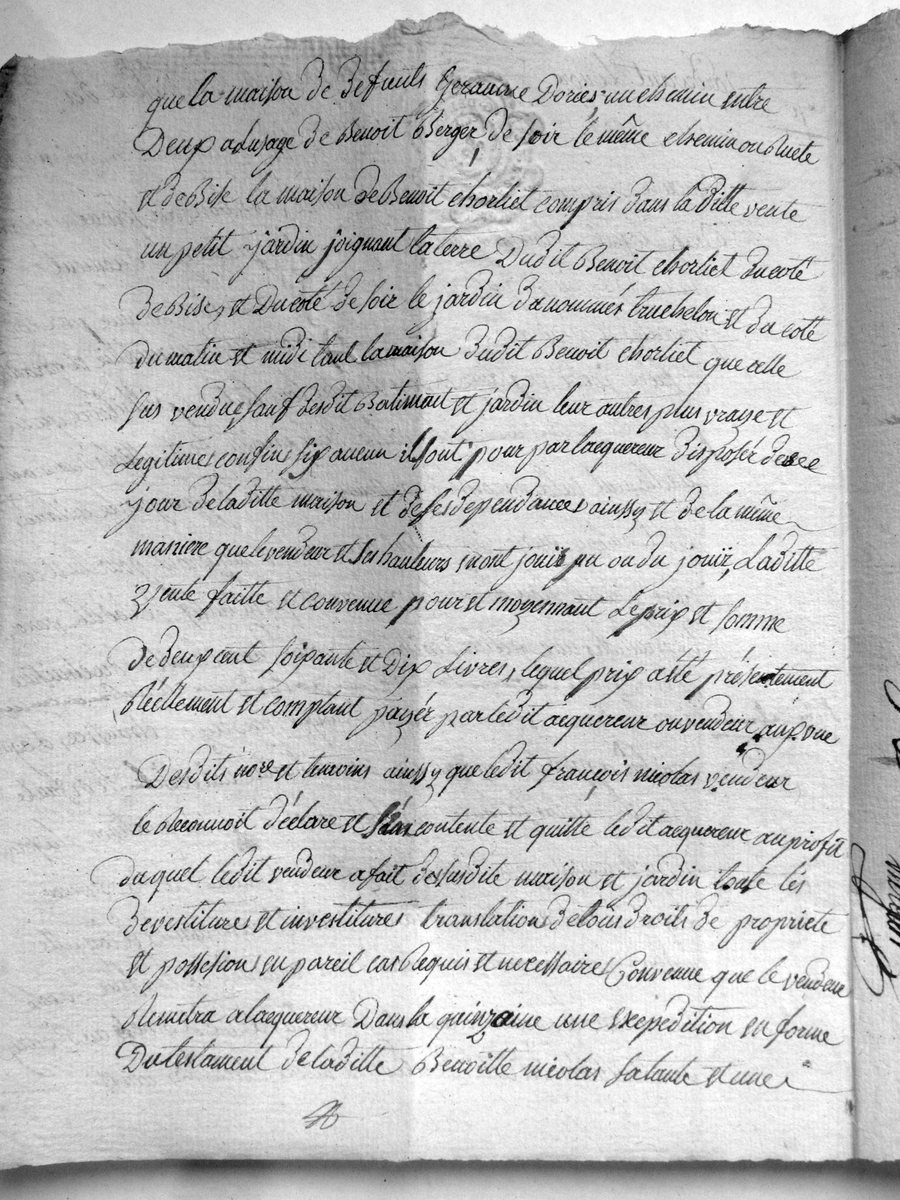 que la maison de defunts Dories, un chemin entre
Deux a lusage de Benoit Berger de soir le même chemin ou Ruete
et de Bise la maison de Benoit chorliet compris dans la ditte vente
un petit jardin joignant la terre Dudit Benoit chorliet du coté
de Bise, et Du coté de soir le jardin du nommés truchelon et du coté
du matin et midi tant la maison dudit Benoit chorliet que celle
sus vendue sauf desdit Batiment et jardin leur autres plus vraye et
Legitimes confins six aucun ils sont, pour par lacquereur disposér de ce
jour de la ditte maison et de ses dependances ainssy et de la même
maniere que le vendeur et ses hauteurs en ont joui pu ou du jouir, Laditte
vente faitte et convenue pour et moyennant Le prix et somme
de deux cent soixante et Dix Livres, lequel prix a été présentement
Réellement et comptant payér par ledit acquereur au vendeur aux vue
Desdits nore et temoins ainssy que ledit françois nicolas vendeur
le Reconnoit déclare et sen contente et quitte ledit acquereur au profit
duquel ledit vendeur a fait de susdite maison et jardin toute les
devestitures et investitures translation de tous droits de propriete
et possesion en pareil cas Requis et necessaires Convenue que le vendeur
Remetra a lacquereur Dans la quinzaine une exepedition en forme
Du testament de laditte Benoitte nicolas sa tante et une